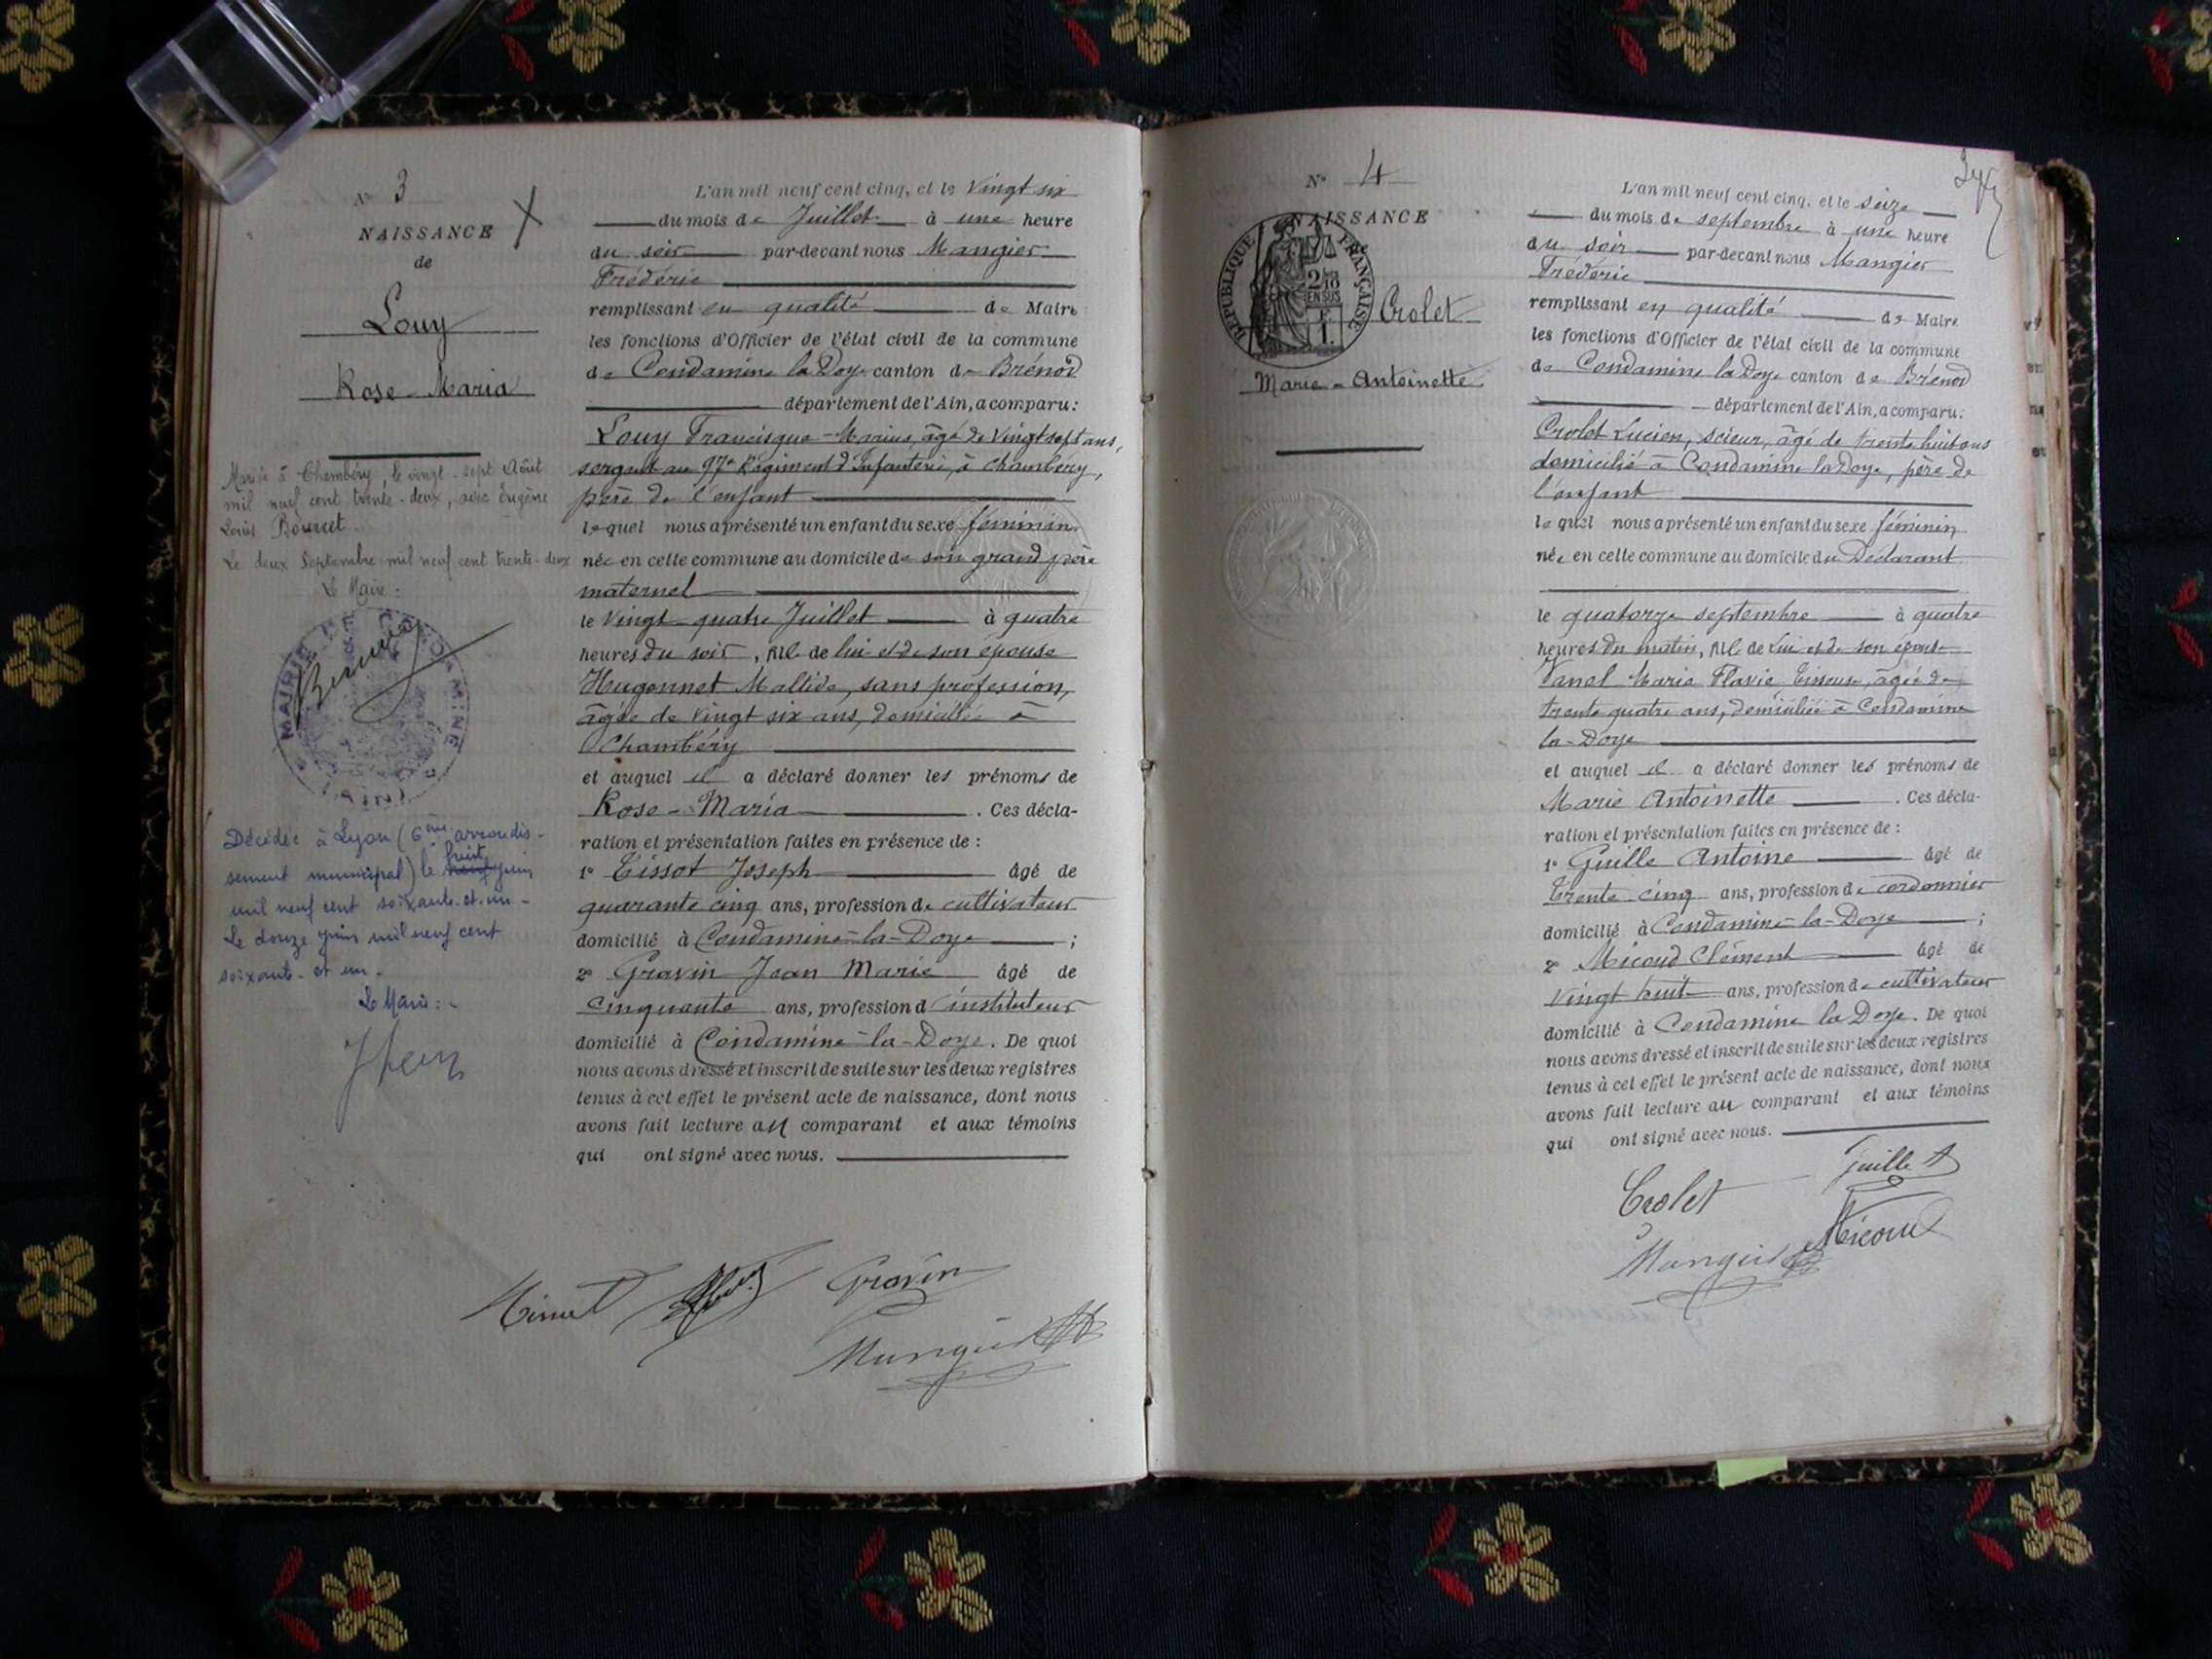 N° 3
NAISSANCE
de
Louy
Rose-Maria
Mariée à Chambéry, le vingt-sept Août
mil neuf cent trente-deux, avec Eugène
Louis Bourcet.
Le deux Septembre mil neuf cent trente-deux
Le Maire:
MAIRIE DE
AIN
Décédée à Lyon (6ème arrondis-
sement municipal) le huit juin
mil neuf cent soixante-et-un-
Le douze juin mil neuf cent
soixante-et un-
Le Maire:-
L'an mil neuf cent cinq, et le Vingt six
du mois de Juillet à une heure
du soir par-devant nous Mangier
Frédéric
remplissant en qualité de Maire
les fonctions d'Officier de l'état civil de la commune
de Condamine la Doye canton de Brénod
département de l'Ain, a comparu:
Louy Francisque-Marius, âgé de Vingt sept ans,
sergent au 97e Régiment d'Infanterie, à Chambéry,
père de l'enfant
lequel nous a présenté un enfant du sexe féminin
née en cette commune au domicile de son grand père
maternel
le Vingt-quatre Juillet à quatre
heures du soir, fille de lui et de son épouse
Hugonnet Maltide, sans profession,
âgée de Vingt six ans, domiciliée à
Chambéry
et auquel il a déclaré donner les prénoms de
Rose-Maria . Ces décla-
ration et présentation faites en présence de :
1° Tissot Joseph âgé de
quarante cinq ans, profession de cultivateur
domicilié à Condamine-la-Doye ;
2° Gravin Jean Marie âgé de
Cinquante ans, profession d'instituteur
domicilié à Condamine-la-Doye. De quoi
nous avons dressé et inscrit de suite sur les deux registres
tenus à cet effet le présent acte de naissance, dont nous
avons fait lecture au comparant et aux témoins
qui ont signé avec nous.
Gravin
Mangier
N° 4
NAISSANCE
REPUBLIQUE FRANÇAISE
2/10
EN SUS
F
1.
Crolet
Marie-Antoinette
L'an mil neuf cent cinq, et le seize
du mois de septembre à une heure
du soir par-devant nous Mangier
Frédéric
remplissant en qualité de Maire
les fonctions d'Officier de l'état civil de la commune
de Condamine la Doye canton de Brénod
département de l'Ain, a comparu:
Crolet Lucien, scieur, âgé de trente huit ans
domicilié à Condamine la Doye, père de
l'enfant
lequel nous a présenté un enfant du sexe féminin
née en cette commune au domicile du Déclarant
le quatorze septembre à quatre
heures du matin, fille de Lui et de son épouse
Vanel Marie Flavie Tisseuse, âgée de
trente quatre ans, domiciliée à Condamine
la-Doye
et auquel il a déclaré donner les prénoms de
Marie Antoinette . Ces décla-
ration et présentation faites en présence de :
1° Guille Antoine âgé de
trente-cinq ans, profession de cordonnier
domicilié à Condamine-la-Doye ;
2° Micoud Clément âgé de
Vingt huit ans, profession de cultivateur
domicilié à Condamine la Doye. De quoi
nous avons dressé et inscrit de suite sur les deux registres
tenus à cet effet le présent acte de naissance, dont nous
avons fait lecture au comparant et aux témoins
qui ont signé avec nous.
Crolet Guille A
Mangier Micoud